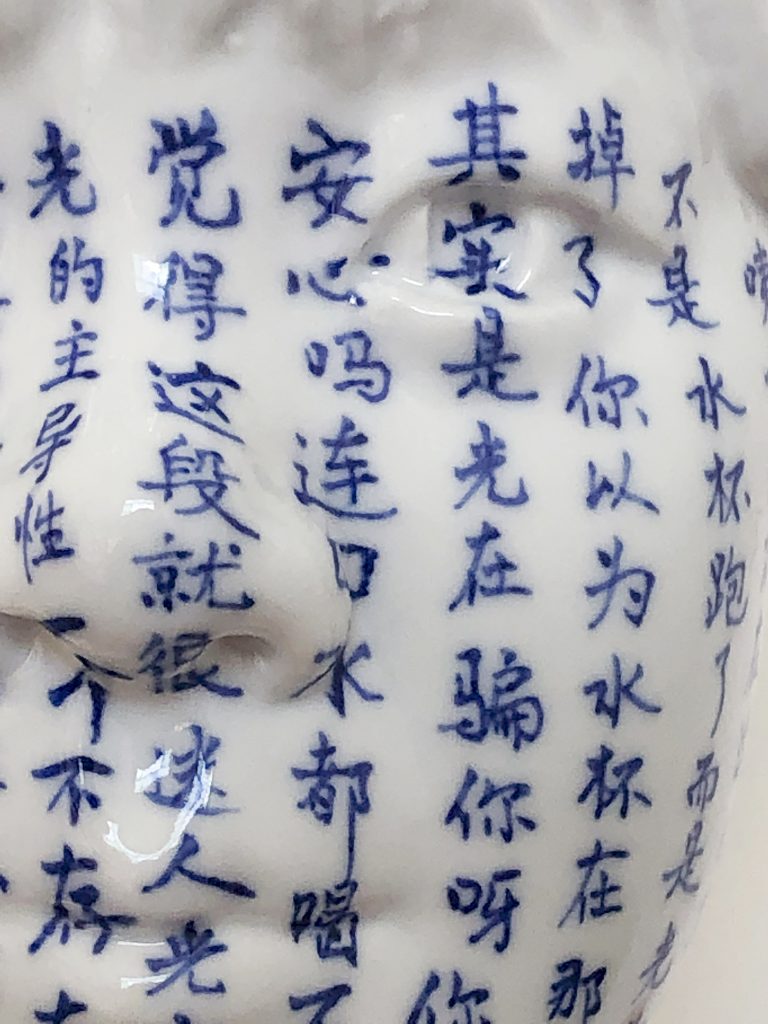 不是水杯跑了而是光
掉了你以为水杯在那
其实是光在骗你呀你
安心吗连口水都喝不
觉得这段就很迷人光
光的主导性一个不存